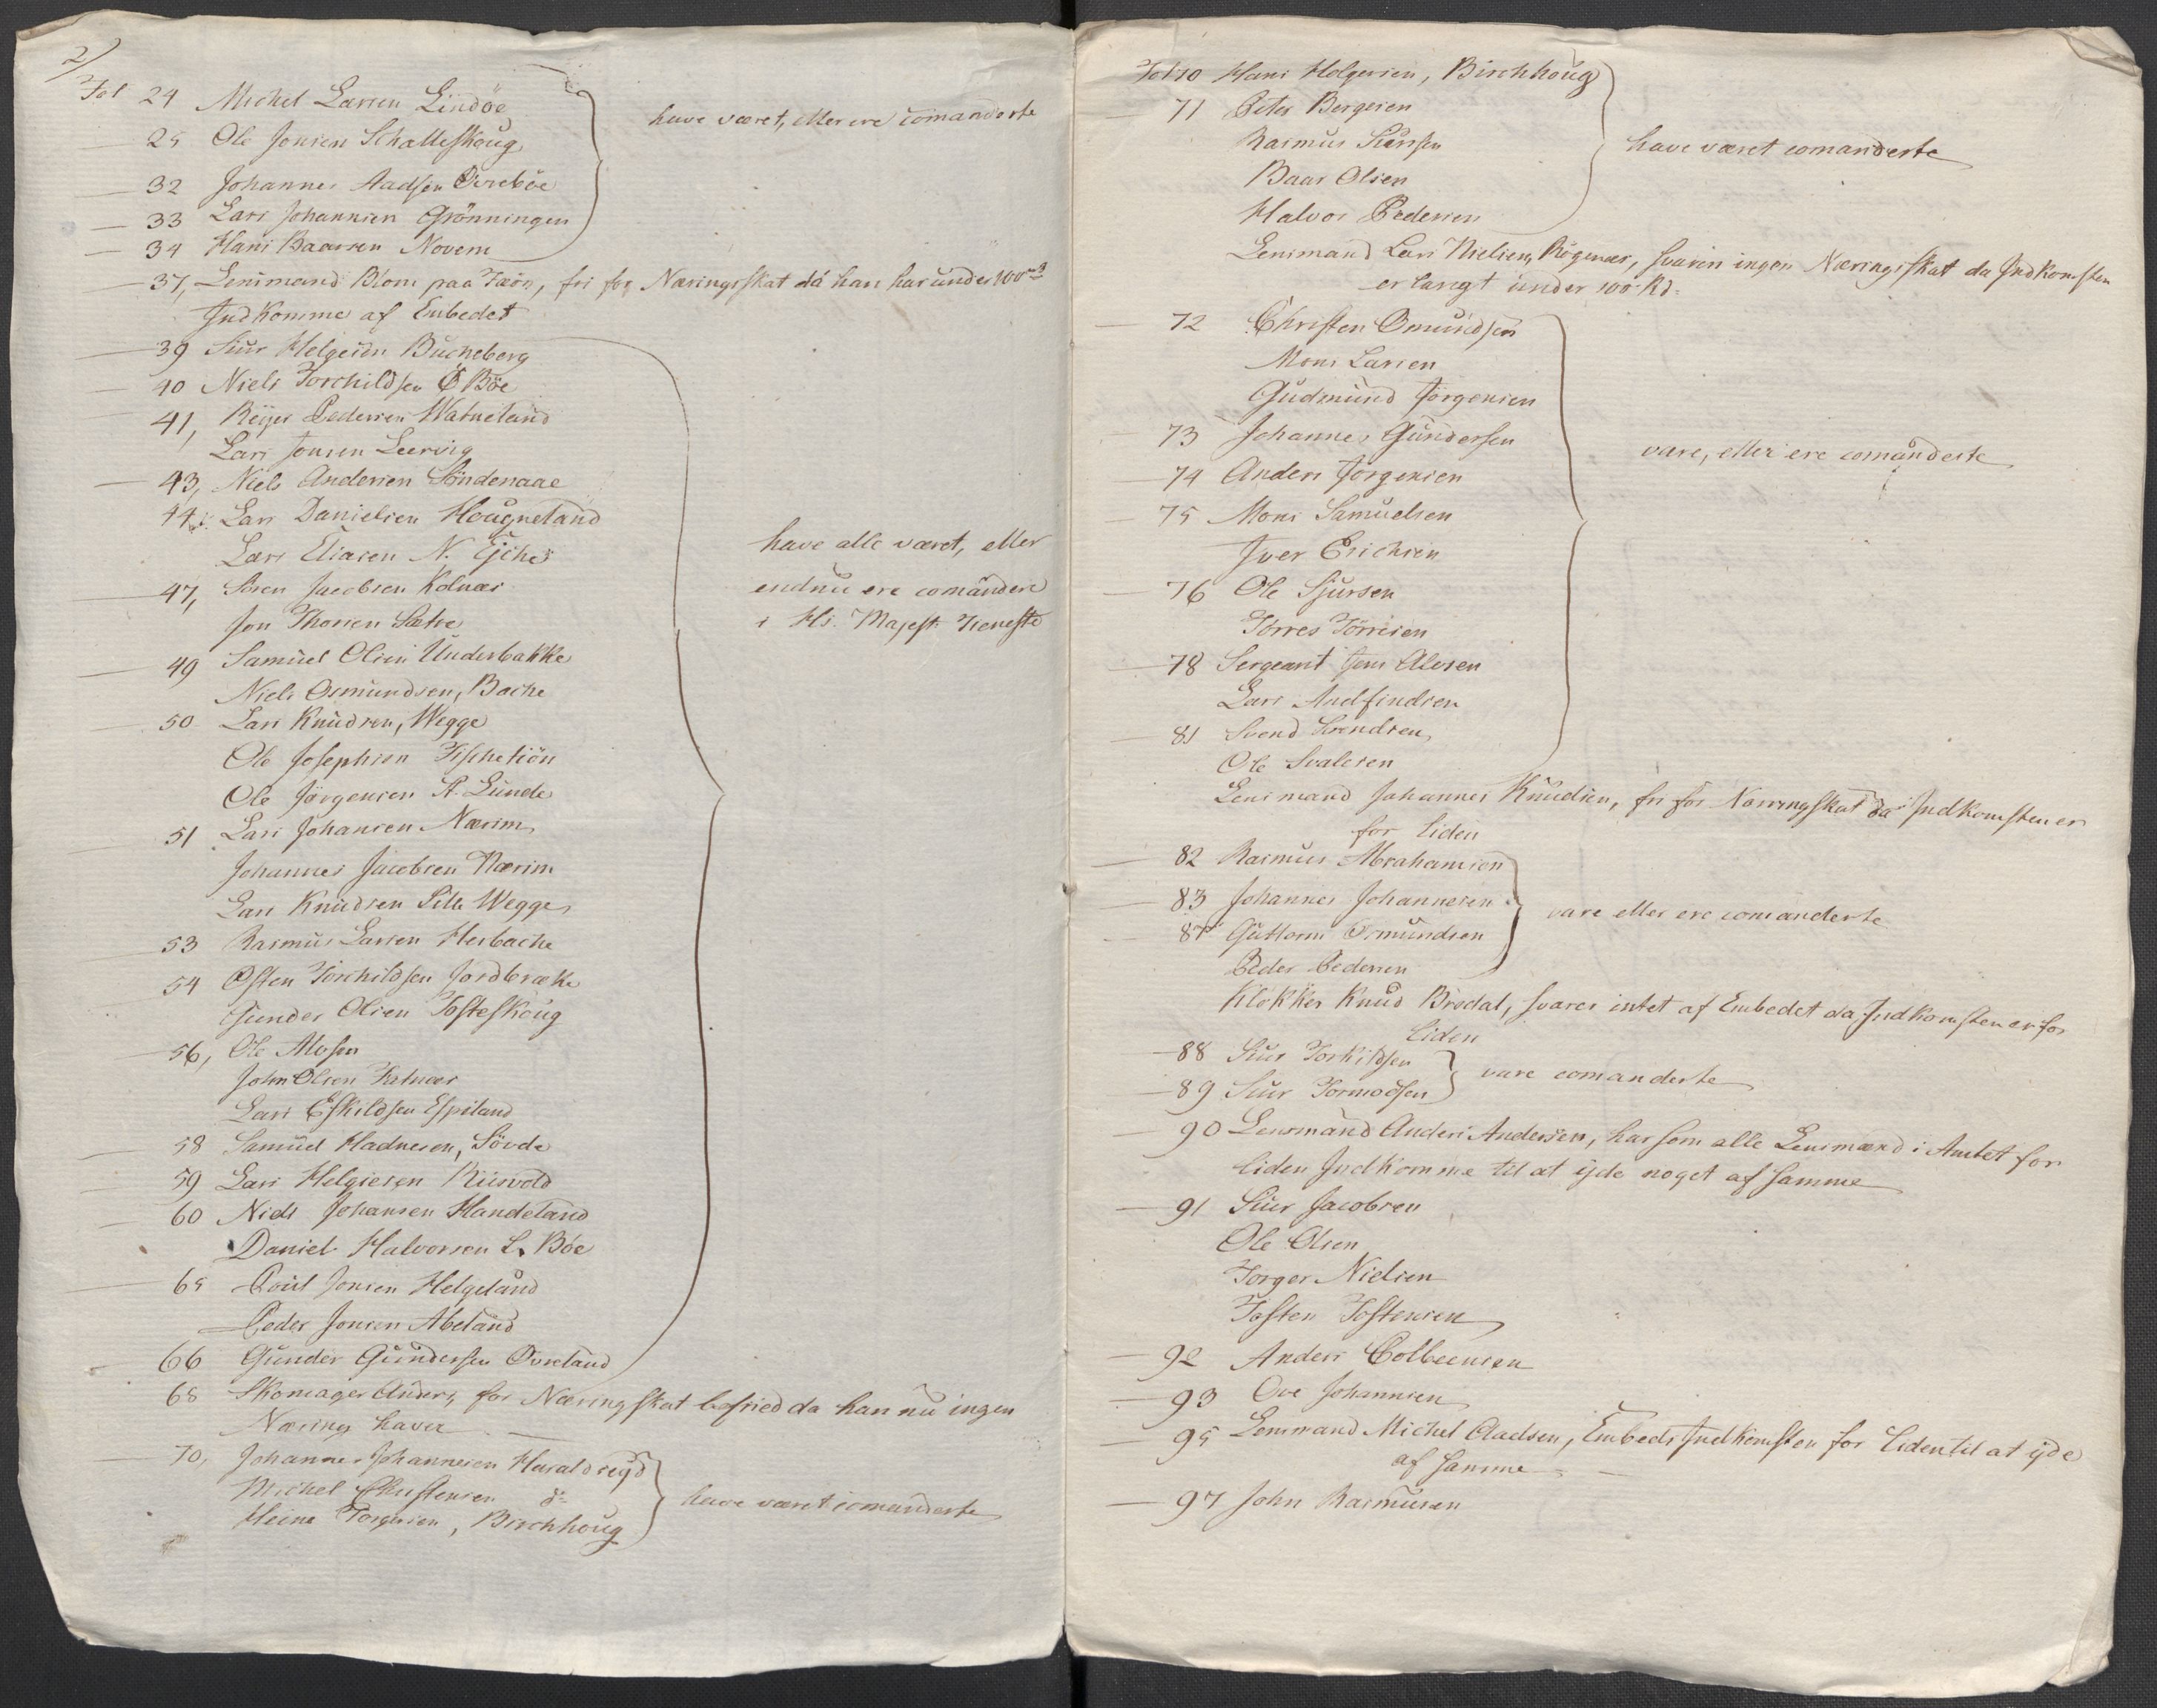 2/
Fol 24 Michel Larsen Lindöe
— 25 Ole Jonsen Schalleskoug
— 32 Johannes Aadsen Övreböe
— 33 Lars Johannsen Grönningen
— 34 Hans Baarsen Novem
have været, eller ere comanderte
— 37, Lensmand Blom paa Fæön, fri for Næringsskat da han har under 100 rd
Indkomme af Embedet
— 39 Siur Helgesen Bucheberg
— 40 Niels Torchildsen Ö Böe
— 41, Reijer Pedersen Watneland
Lars Jonsen Leervig
— 43, Niels Andersen Söndenaae
44, Lars Danielsen Hougneland
Lars Eliasen N.
47, Sören Jacobsen Kolnæs
Jon Thorsen Sætre
— 49 Samuel Olsen Underbakke
Niels Osmundsen, Bache
— 50 Lars Knudsen, Wegge
Ole Josephsen Fischetiön
Ole Jörgensen A. Lunde
— 51 Lars Johansen Nærim
Johannes Jacobsen Nærim
Lars Knudsen Lille Wegge
53 Rasmus Larsen Hesbache
54 Östen Torchildsen Jordbrække
Gunder Olsen Tofteskoug
— 56, Ole Alvsen
John Olsen Fatnæs
Lars Eskildsen Espeland
— 58 Samuel Hadnesen, Sövde
— 59 Lars Helgiesen Riisvold
— 60 Niels Johansen Handeland
Daniel Halvorsen L. Böe
— 65 Poul Jonsen Helgeland
Peder Jonsen Abeland
— 66 Gunder Gundersen Övreland
have alle været, eller
endnu ere comandere
i Hs. Majest. Tieneste
68 Skomager Anders, for Næringskat befried da han nu ingen
Næring haver —
— 70, Johannes Johannesen Haraldseijd
Michel Christensen do
Heine Torgersen, Birchhoug
have været comanderte
Fol 70 Hans Holgersen, Birchhoug
— 71 Peter Bergesen
Rasmus Siursen
Baar Olsen
Halvor Pedersen
have været comanderte
Lensmand Lars Nielsen Rögenæs, svarer ingen Næringsskat da Indkomsten
er langt under 100 Rd.
— 72 Christen Omundsen
Mons Larsen
Gudmund Jörgensen
— 73 Johannes Gundersen
— 74 Anders Jörgensen
— 75 Mons Samuelsen
Iver Erichsen
— 76 Ole Sjursen
Törres Törresen
— 78 Sergeant Jens Alvsen
Lars Andfindsen
— 81 Svend Svendsen
Ole Svalesen
vare, eller ere comanderte
Lensmand Johannes Knudsen, fri for Næringskat da Indkomsten er
for liden
— 82 Rasmus Abrahamsen
— 83 Johannes Johannesen
— 87 Guttorm Osmundsen
Peder Pedersen
vare eller ere comanderte
Klokker Knud Bredal, svarer intet af Embedet da Indkomsten er for
liden
— 88 Siur Torkildsen
— 89 Siur Tormodsen
vare comanderte
— 90 Lensmand Anders Andersen, har som alle Lensmænd i Amtet for
liden Indkomme til at ijde noget af samme
— 91 Siur Jacobsen
Ole Olsen
Torger Nielsen
Tosten Tostensen
— 92 Anders Colbeensen
— 93 Ove Johannsen
— 95 Lensmand Michel Aadsen, Embeds Indkomsten for liden til at ijde
af samme —
— 97 John Rasmusen